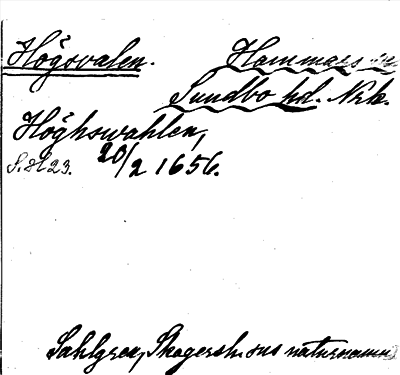 Högsvalen. Hammars sn
Sundbo hd. Nrk.
Höghswahlen,
S. H 23. 20/2 1656.
Sahlgren, Skagersh:s naturnamn